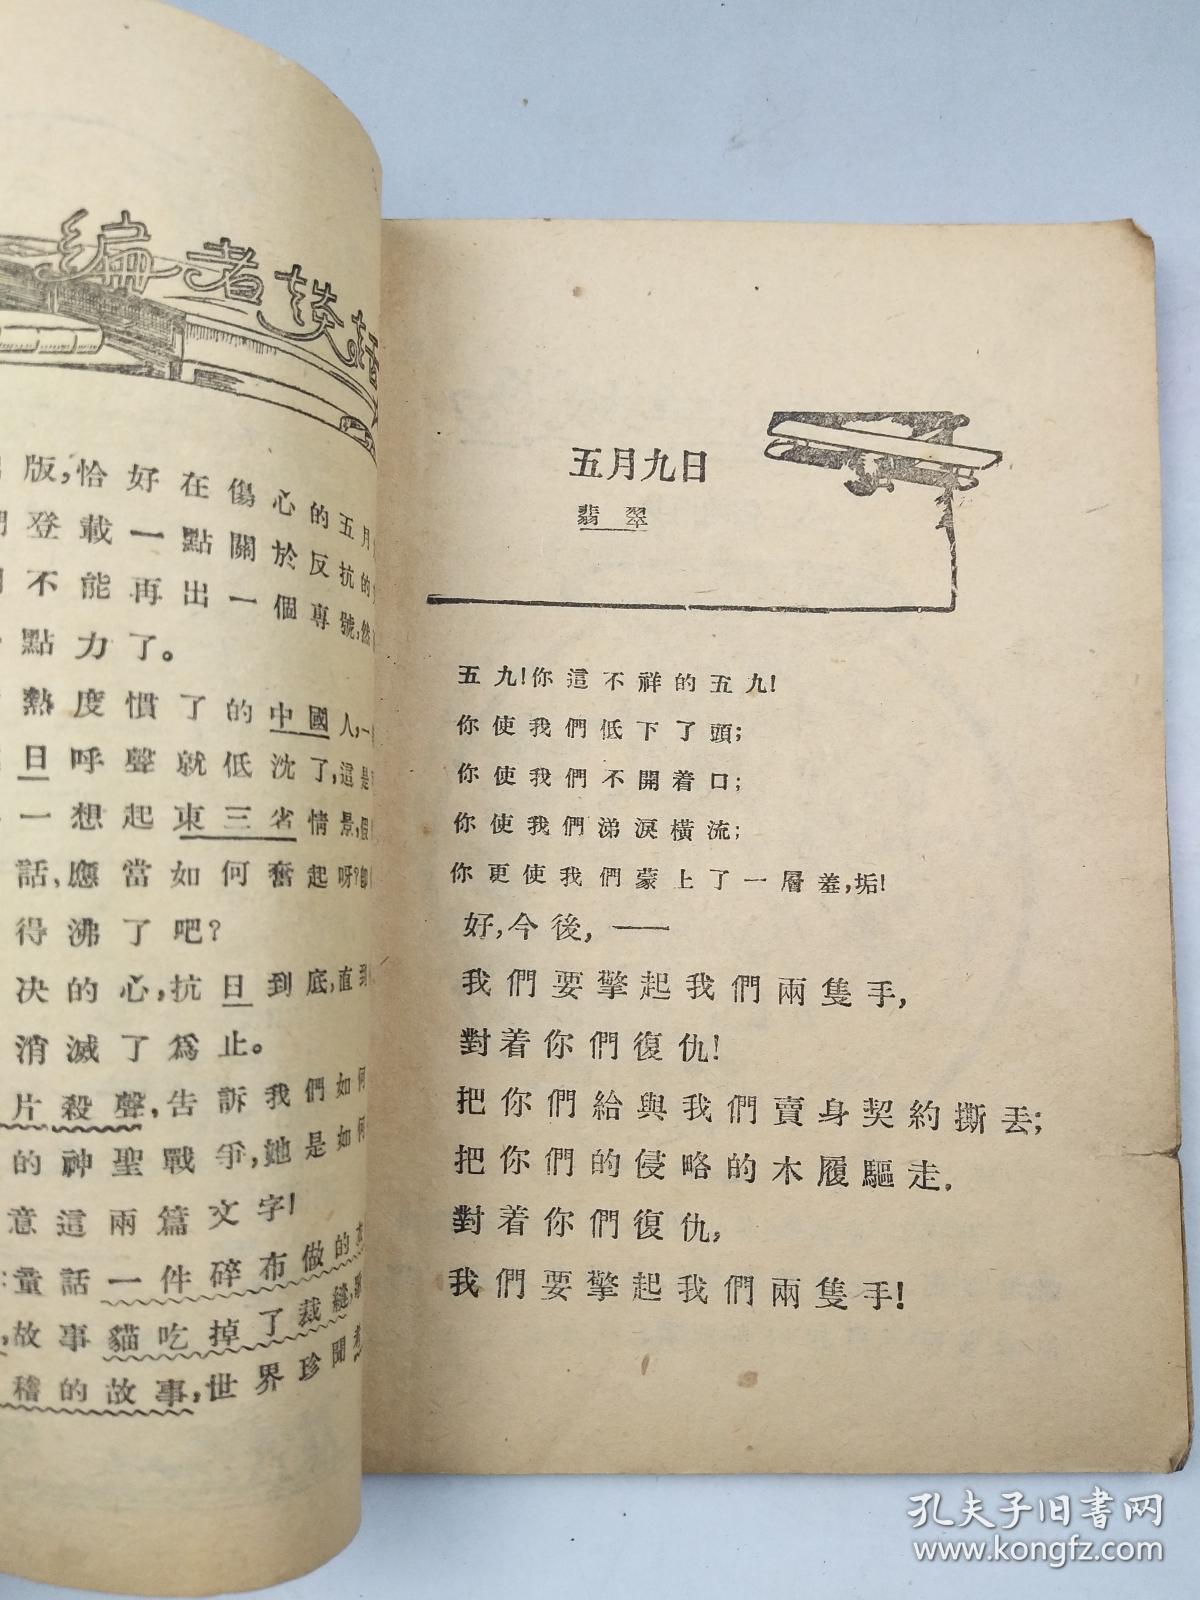 編者談話
版,恰好在傷心的五月
們登載一點關於反抗的
不能再出一個專號,然
點力了。
熱度慣了的中國人,一
日呼聲就低沈了,這是
一想起東三省情景,假
話,應當如何奮起呀?
得沸了吧?
决的心,抗日到底,直到
消滅了爲止。
片殺聲,告訴我們如何
的神聖戰爭,她是如何
意這兩篇文字!
童話一件碎布做的
,故事貓吃掉了裁縫,
稽的故事,世界珍聞
五月九日
翡翠
五九!你這不祥的五九!
你使我們低下了頭;
你使我們不開着口;
你使我們涕淚橫流;
你更使我們蒙上了一層羞,垢!
好,今後,——
我們要擎起我們兩隻手,
對着你們復仇!
把你們給與我們賣身契約撕丟;
把你們的侵略的木履驅走.
對着你們復仇,
我們要擎起我們兩隻手!
孔夫子旧书网
www.kongfz.com